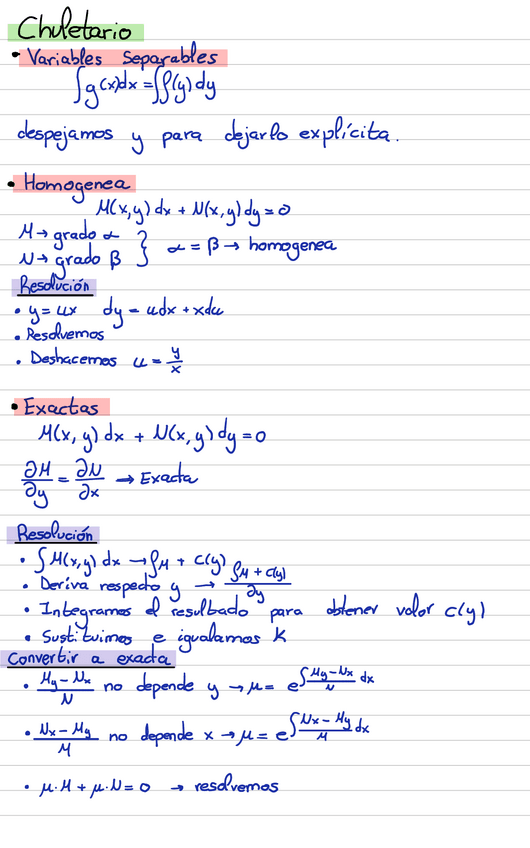 Chuletario
• Variables Separables
∫g(x)dx = ∫f(y)dy
despejamos y para dejarlo explícita.
• Homogenea
M(x,y) dx + N(x,y) dy = 0
M → grado α
N → grado β } α = β → homogenea
Resolución
• y = ux dy = udx + xdu
• Resolvemos
• Deshacemos u = y/x
• Exactas
M(x,y) dx + N(x,y) dy = 0
∂M/∂y = ∂N/∂x → Exacta
Resolución
• ∫M(x,y) dx → ∫M + c(y)
• Deriva respecto y → ∫M + c(y)/∂y
• Integramos el resultado para obtener valor c(y)
• Sustituimos e igualamos K
Convertir a exacta
• My - Nx/N no depende y → μ = e^∫My-Nx/N dx
• Nx - My/M no depende x → μ = e^∫Nx-My/M dx
• μ·M + μ·N = 0 → resolvemos